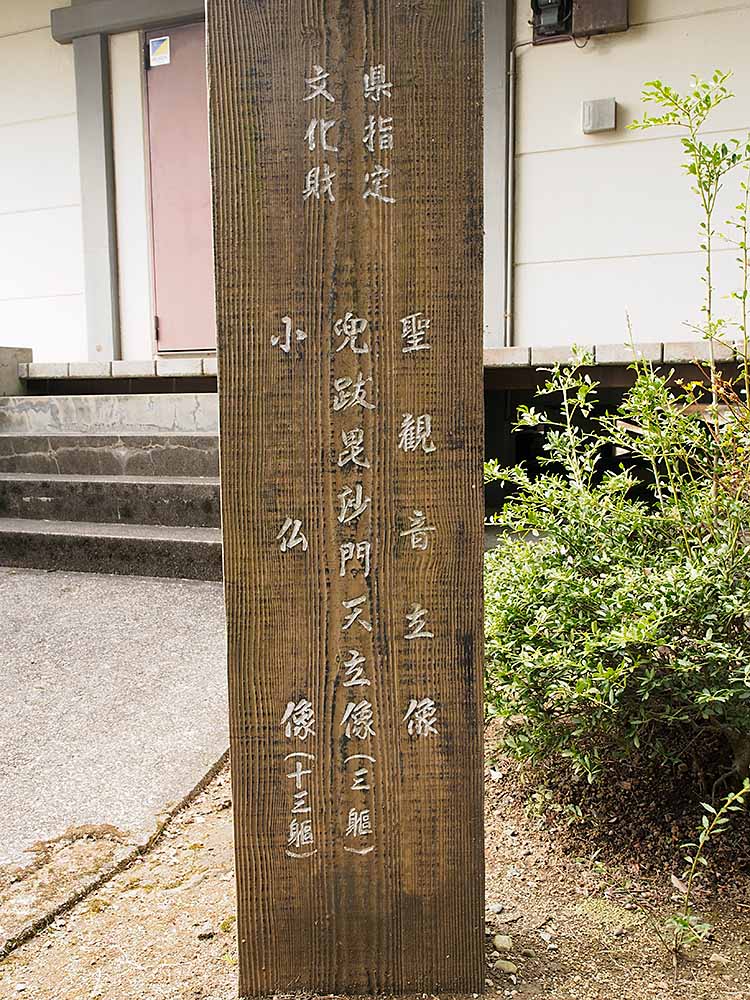 県指定
文化財
聖観音立像
兜跋毘沙門天立像(三軀)
小仏像(十三軀)